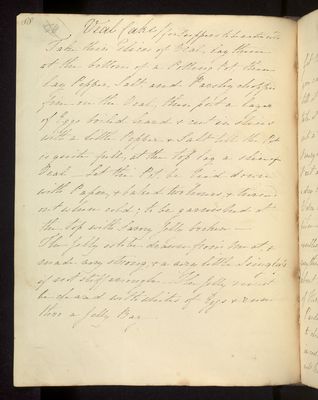 Veal Cake
Take thin slices of Veal, lay them
at the bottom of a Potting Pot then
lay Pepper, Salt and Parsley chopt
fine on the Veal, then put a layer
of Eggs boiled hard & cut in slices
with a little Pepper & Salt till the Pot
is quite full, at the top lay a slice of
Veal Let the Pot be tied down
with Paper, & baked two hours & turned
out when cold; to be garnished at
the top with Savory Jelly broken
The Jelly to be drawn from Meat, &
made very strong, & a very little Isinglass
if not stiff enough. The Jelly must
be cleared with whites of Eggs & run
thro a Jelly Bag